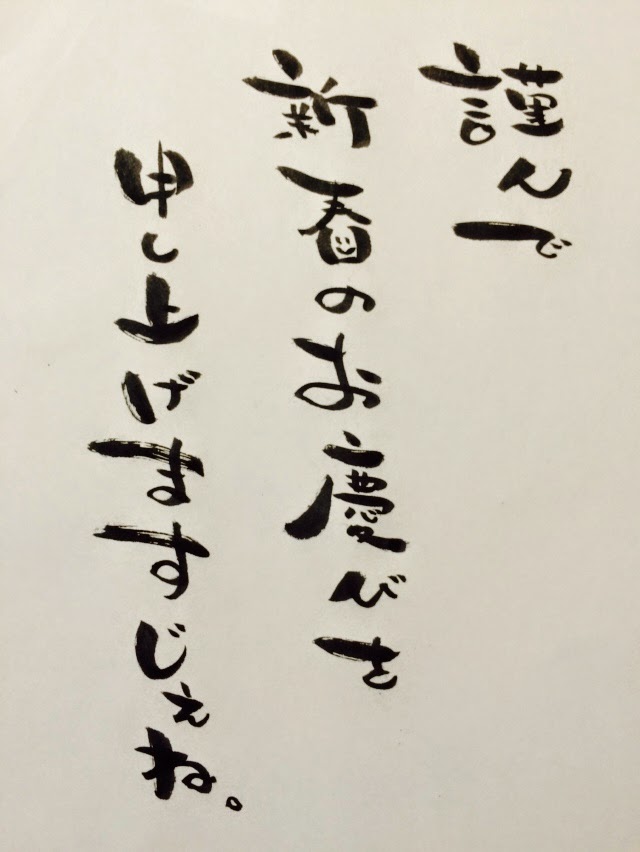 謹んで
新春のお慶びを
申し上げますじぇね。